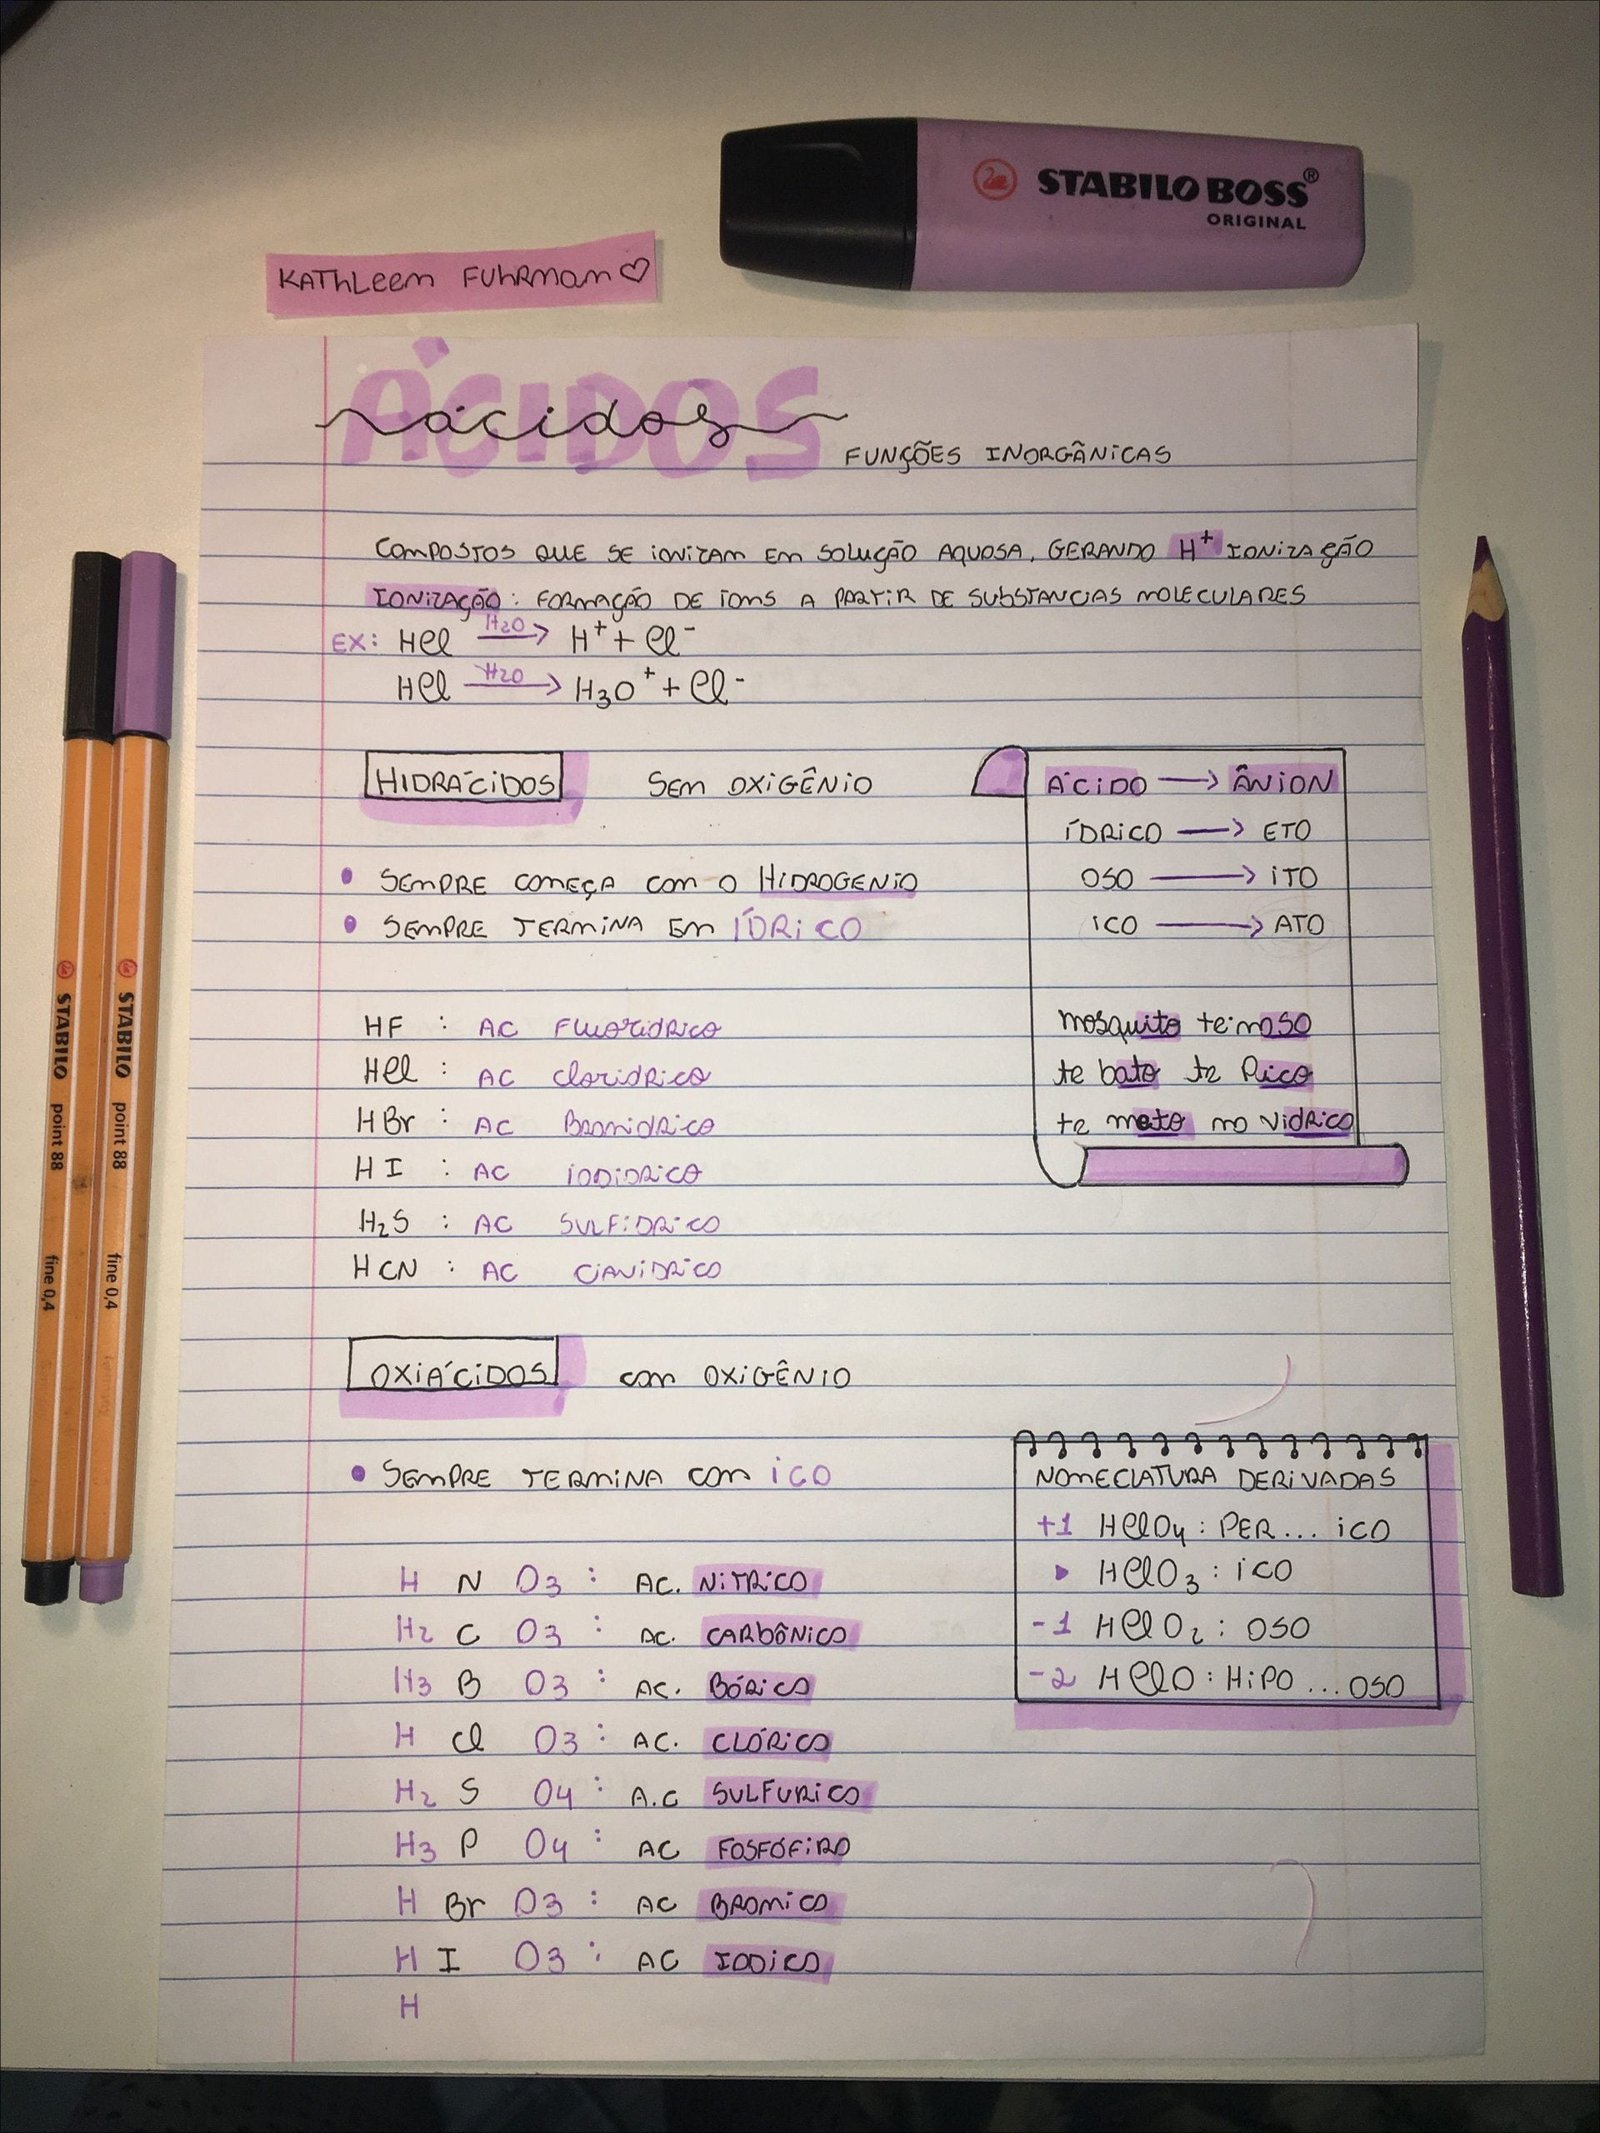 STABILO BOSS®
ORIGINAL
KATHLEEN FUHRMAN♡
ÁCIDOS
ácidos
FUNÇÕES INORGÂNICAS
COMPOSTOS QUE SE IONIZAM EM SOLUÇÃO AQUOSA, GERANDO H⁺ IONIZAÇÃO
IONIZAÇÃO: FORMAÇÃO DE IONS A PARTIR DE SUBSTANCIAS MOLECULARES
EX: HCl H₂O → H⁺ + Cl⁻
HCl H₂O → H₃O⁺ + Cl⁻
HIDRÁCIDOS SEM OXIGÊNIO
• SEMPRE COMEÇA COM O HIDROGENIO
• SEMPRE TERMINA EM ÍDRICO
HF : AC FLUORÍDRICO
HCl : AC CLORIDRICO
HBr : AC BROMIDRICO
HI : AC IODIDRICO
H₂S : AC SULFIDRICO
HCN : AC CIANIDRICO
ÁCIDO → ÂNION
ÍDRICO → ETO
OSO → ITO
ICO → ATO
mosquito teimoso
te bato te Pico
te meto no vidrico
OXIÁCIDOS COM OXIGÊNIO
• SEMPRE TERMINA COM ICO
H N O₃ : AC. NITRICO
H₂ C O₃ : AC. CARBÔNICO
H₃ B O₃ : AC. BÓRICO
H Cl O₃ : AC. CLÓRICO
H₂ S O₄ : A.C SULFURICO
H₃ P O₄ : AC FOSFÓFIRO
H Br O₃ : AC BROMICO
H I O₃ : AC IODICO
H
NOMECLATURA DERIVADAS
+1 HClO₄ : PER... ICO
▶ HClO₃ : ICO
-1 HClO₂ : OSO
-2 HClO : HIPO ... OSO
STABILO point 88 fine 0,4
STABILO point 88 fine 0,4